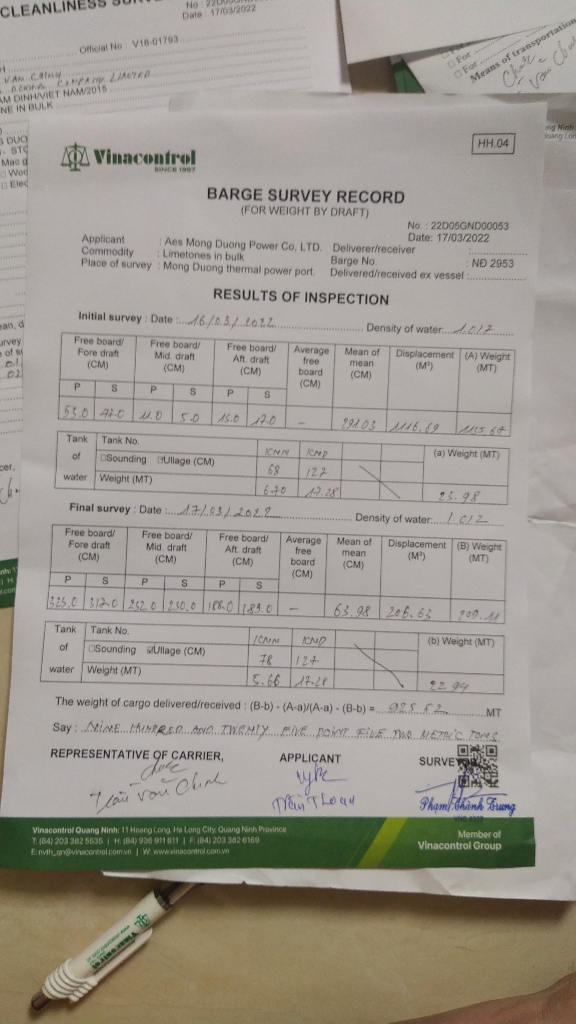 CLEANLINESS
Date : 17/03/2022
Official No : V16-01793
AM DINH/VIET NAM/2015
NE IN BULK
For
For
Means of transportation
HH.04
Vinacontrol
SINCE 1957
BARGE SURVEY RECORD
(FOR WEIGHT BY DRAFT)
No. : 22D05GND00053
Date: 17/03/2022
Applicant : Aes Mong Duong Power Co, LTD. Deliverer/receiver :
Commodity : Limetones in bulk Barge No. : NĐ 2953
Place of survey : Mong Duong thermal power port. Delivered/received ex vessel :
RESULTS OF INSPECTION
Initial survey : Date : 16/03/2022 Density of water: 1.012
Free board/ Fore draft (CM) Free board/ Mid. draft (CM) Free board/ Aft. draft (CM) Average free board (CM) Mean of mean (CM) Displacement (M³) (A) Weight (MT)
P S P S P S
53.0 47.0 11.0 5.0 15.0 17.0 – 291.03 1116.69
Tank of water Tank No. (a) Weight (MT)
Sounding Ullage (CM) 68 127
Weight (MT) 6.70 17.28 23.98
Final survey : Date : 17/03/2022 Density of water: 1.012
Free board/ Fore draft (CM) Free board/ Mid. draft (CM) Free board/ Aft. draft (CM) Average free board (CM) Mean of mean (CM) Displacement (M³) (B) Weight (MT)
P S P S P S
325.0 317.0 252.0 250.0 186.0 183.0 – 63.98 206.63 209.11
Tank of water Tank No. (b) Weight (MT)
Sounding Ullage (CM) 78 127
Weight (MT) 5.66 17.28 22.94
The weight of cargo delivered/received : (B-b) - (A-a)/(A-a) - (B-b) = 925.52 MT
Say : NINE HUNDRED AND TWENTY FIVE POINT FIVE TWO METRIC TONS
REPRESENTATIVE OF CARRIER, APPLICANT SURVEYOR
Trần Văn Chinh Phạm Thành Trung
Vinacontrol Quang Ninh: 11 Hoang Long, Ha Long City, Quang Ninh Province
T: (84) 203 382 5535 | H: (84) 936 911 811 | F: (84) 203 382 6169
E: nvth_qn@vinacontrol.com.vn | W: www.vinacontrol.com.vn
Member of
Vinacontrol Group